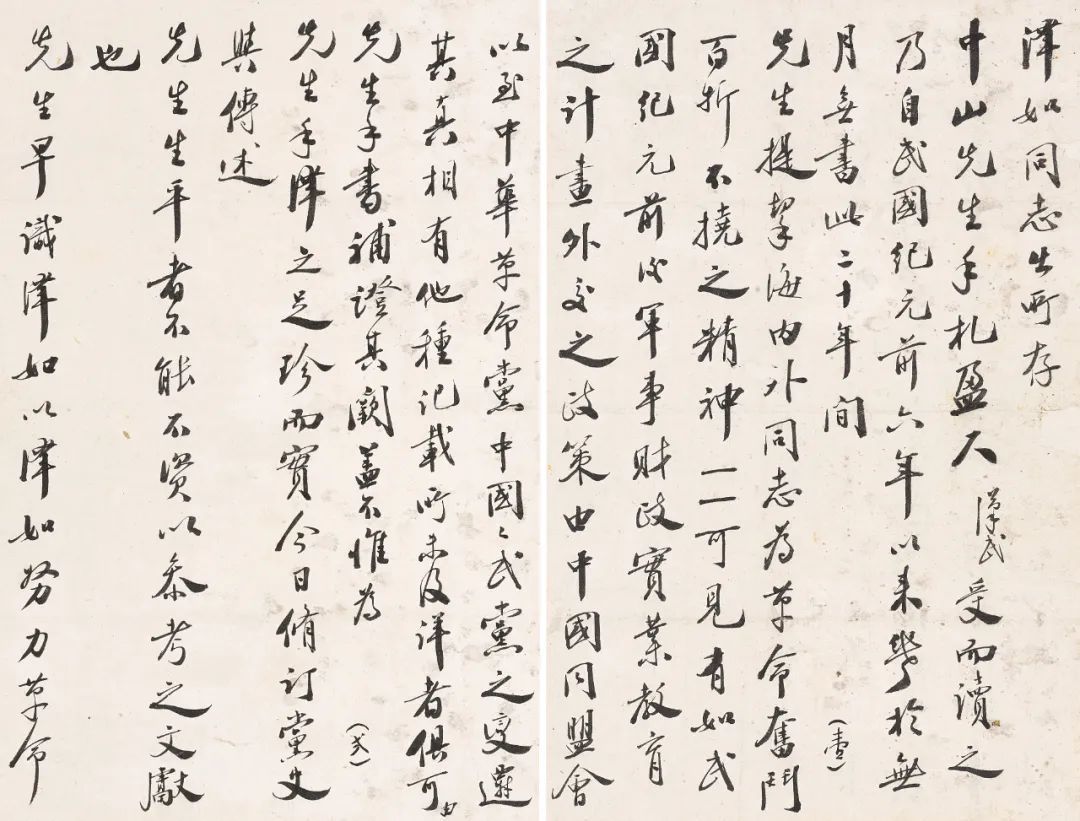 澤如同志出所存
中山先生手札盈尺漢民受而讀之
乃自民國紀元前六年以來幾於無
月無書此二十年間
(壹)
先生提挈海內外同志為革命奮鬥
百折不撓之精神一一可見有如民
國紀元前後軍事財政實業教育
之計畫外交之政策由中國同盟會
以至中華革命黨中國々民黨之變遷
其真相有他種記載所未及詳者俱可由
先生手書補證其闕蓋不惟為
(貳)
先生手澤之足珍而實今日脩訂黨史
與傳述
先生生平者不能不資以參考之文獻
也
先生早識澤如以澤如努力革命